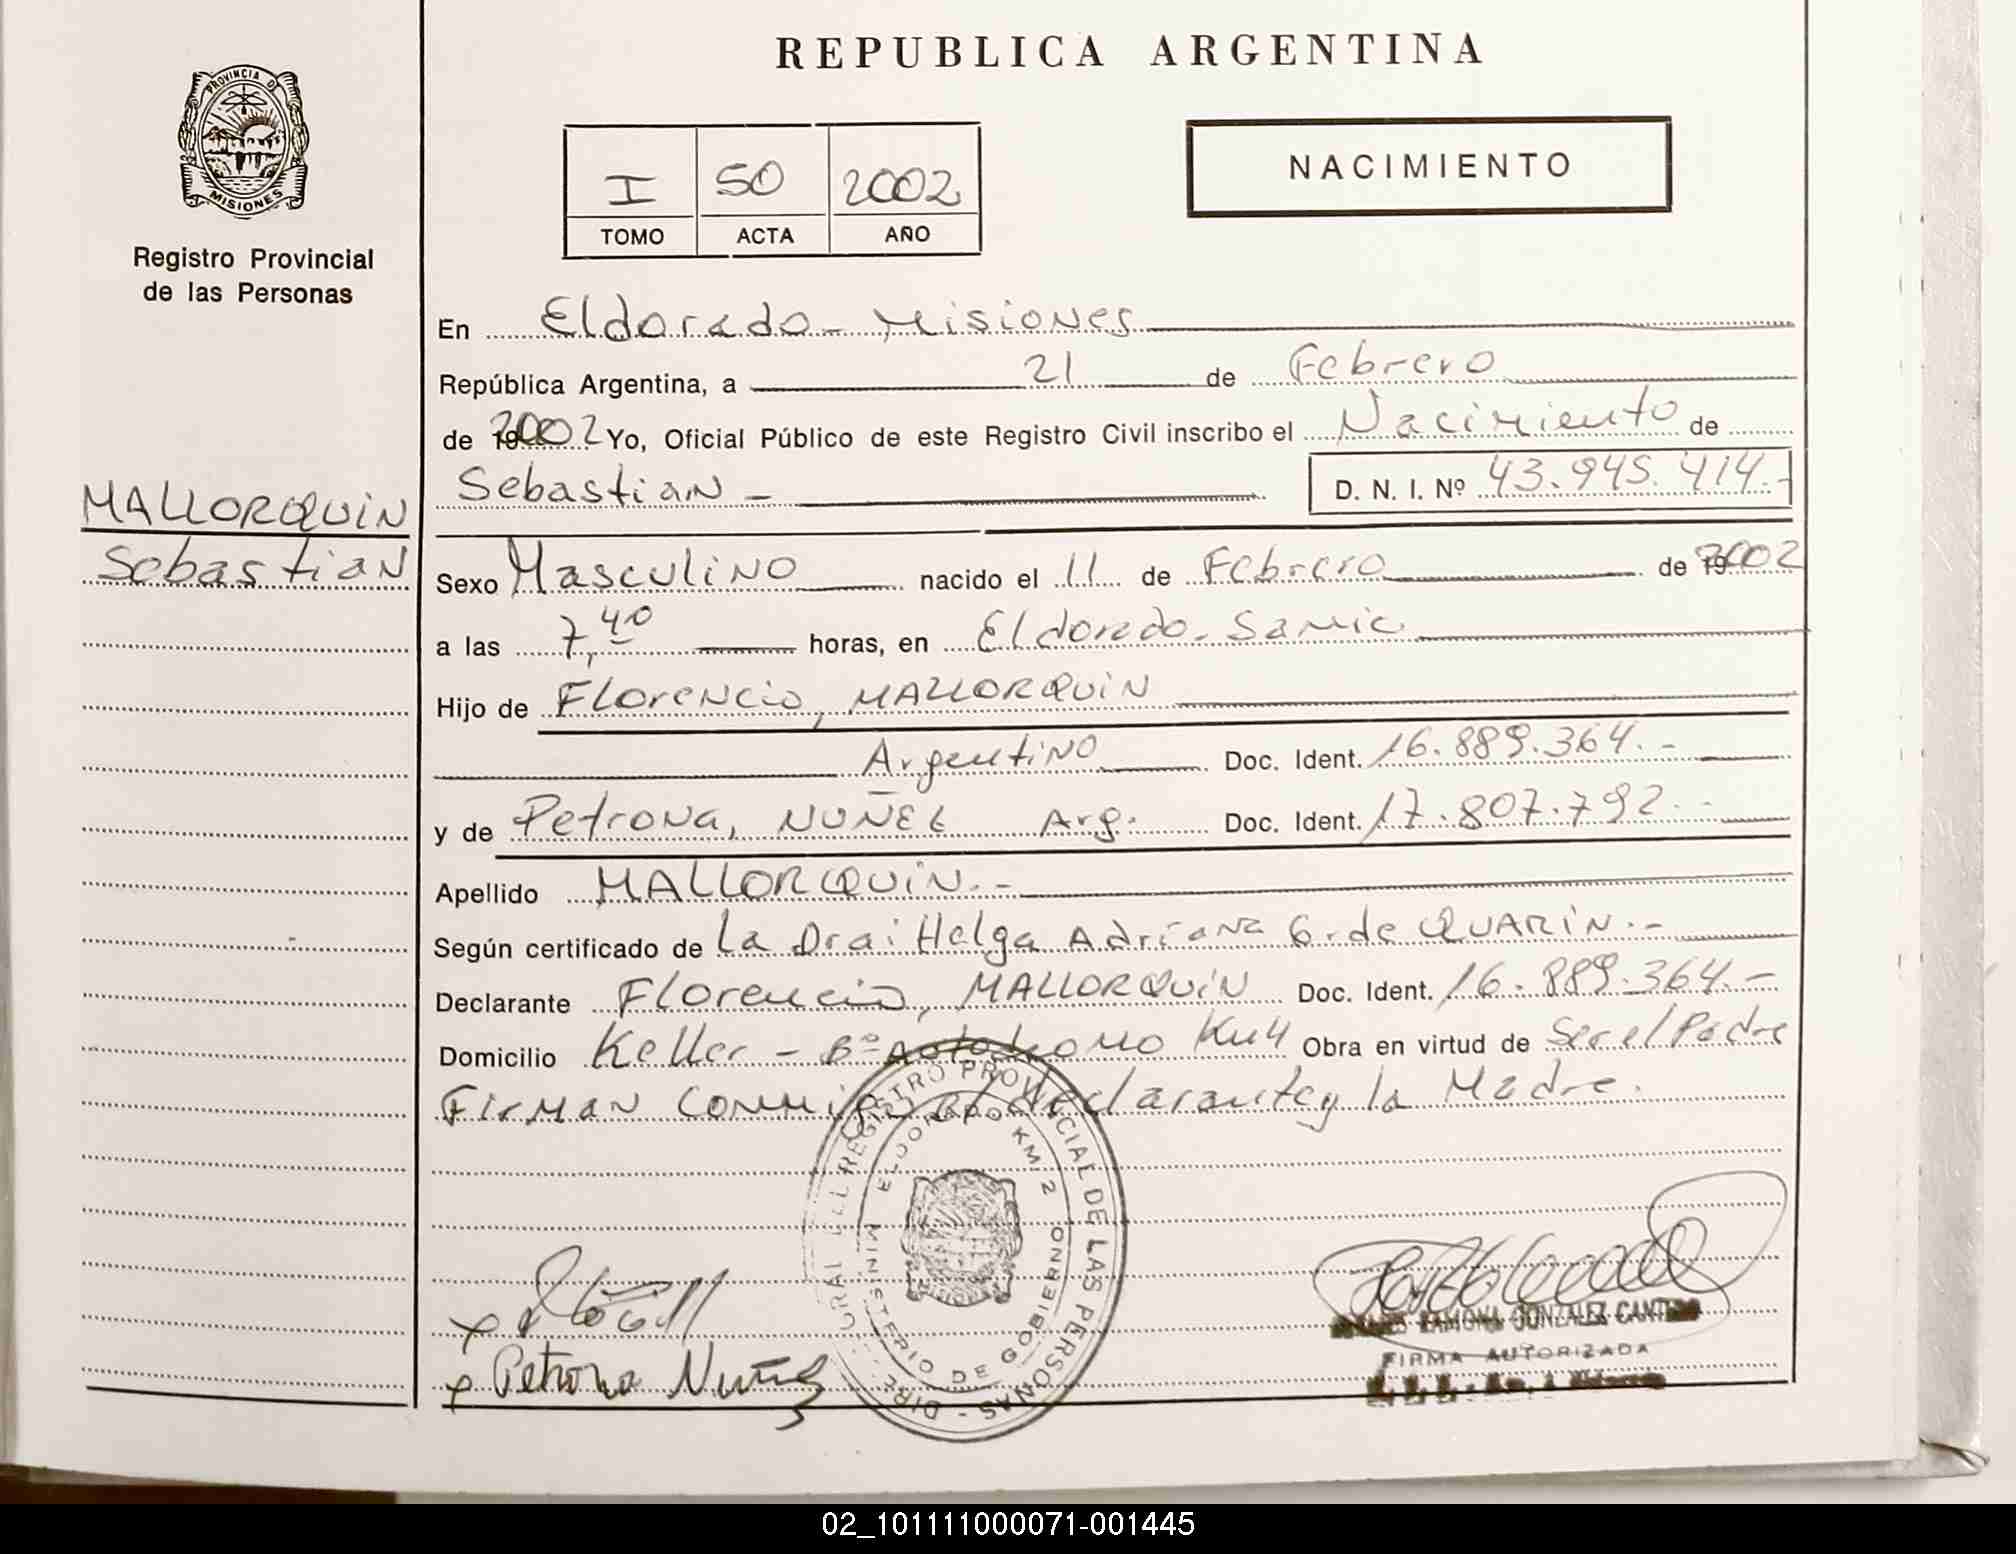 REPUBLICA ARGENTINA
PROVINCIA DE
MISIONES
Registro Provincial
de las Personas
I 50 2002
TOMO ACTA AÑO
NACIMIENTO
En Eldorado - Misiones
República Argentina, a 21 de Febrero
de 2002 Yo, Oficial Público de este Registro Civil inscribo el Nacimiento de
Sebastian - D. N. I. Nº 43.945.414.-
MALLORQUIN
Sebastian
Sexo Masculino nacido el 11 de Febrero de 2002
a las 7,40 horas, en Eldorado - Samic
Hijo de Florencio, MALLORQUIN
Argentino Doc. Ident. 16.889.364.-
y de Petrona, NUÑEZ Arg. Doc. Ident. 17.807.792.-
Apellido MALLORQUIN.-
Según certificado de La Dra: Helga Adriana G. de QUARIN.-
Declarante Florencio, MALLORQUIN Doc. Ident. 16.889.364.-
Domicilio Keller - Bº Autodromo Km 4 Obra en virtud de Ser el Padre
Firman Conmigo el declarante y la Madre.
REGISTRO PROVINCIAL DE LAS PERSONAS - DIRE
ELDORADO KM 2
MINISTERIO DE GOBIERNO
x
x Petrona Nuñez
RAMONA GONZALEZ CANTERO
FIRMA AUTORIZADA
02_101111000071-001445